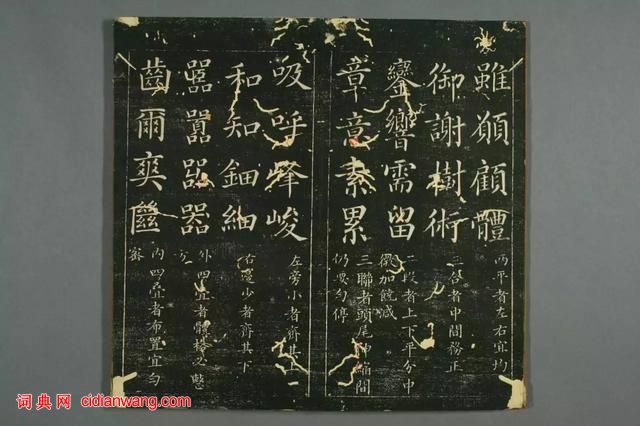 雖願顧體
兩平者左右宜均
御謝樹術
三合者中間務正
響需留
二段者上下平分中
微加饒減
章意素累
三聯者頭尾伸縮間
仍要勻停
吸呼峰峻
左旁小者齊其上
和知鈿細
右邊少者齊其下
囂器
外四疊者體
方
齒爾爽
內四疊者布置宜勻
词典网 cidianwang.com